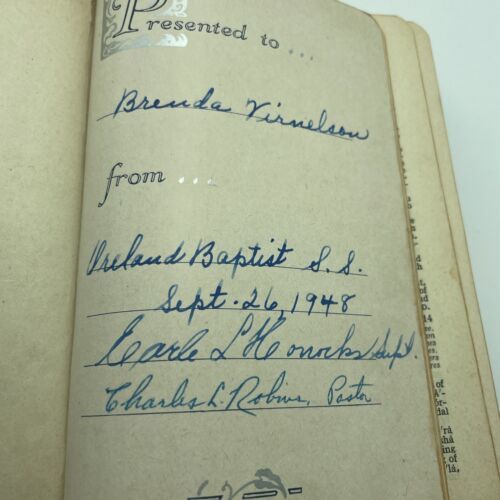 Presented to ...
Brenda Virnelson
from ...
Oreland Baptist S. S.
Sept. 26, 1948
Earle L Supt.
Charles L. Robins, Pastor